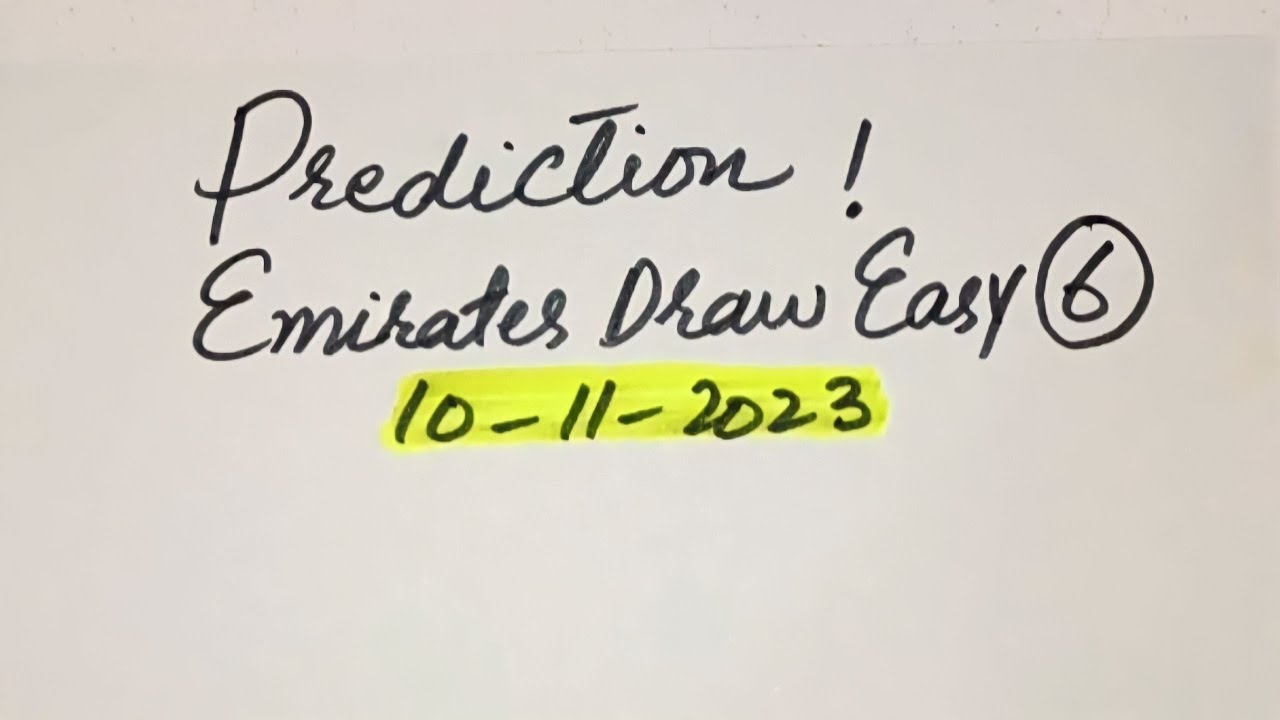 Prediction !
Emirates Draw Easy 6
10-11-2023